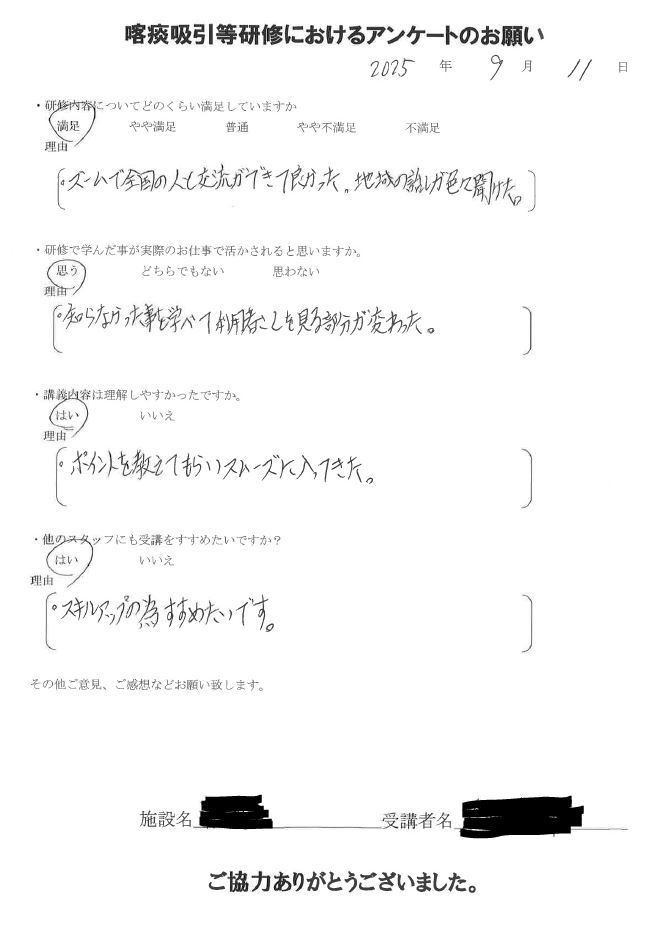 喀痰吸引等研修におけるアンケートのお願い
2025 年 9 月 11 日
・研修内容についてどのくらい満足していますか
満足 やや満足 普通 やや不満足 不満足
理由
・ズームで全国の人と交流ができて良かった。地域の話しが色々聞けた。
・研修で学んだ事が実際のお仕事で活かされると思いますか。
思う どちらでもない 思わない
理由
・知らなかった事を学べて利用者を見る部分が変わった。
・講義内容は理解しやすかったですか。
はい いいえ
理由
・ポイントを教えてもらいスムーズに入ってきた。
・他のスタッフにも受講をすすめたいですか？
はい いいえ
理由
・スキルアップの為すすめたいです。
その他ご意見、ご感想などお願い致します。
施設名 受講者名
ご協力ありがとうございました。